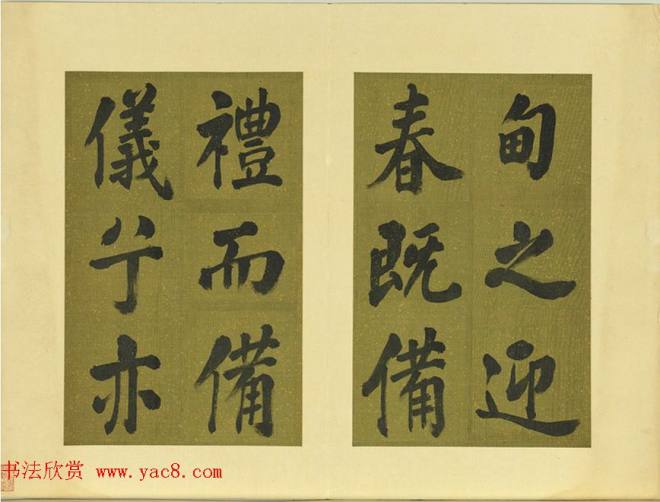 甸之迎
春既備
禮而備
儀兮亦
书法欣赏 www.yac8.com